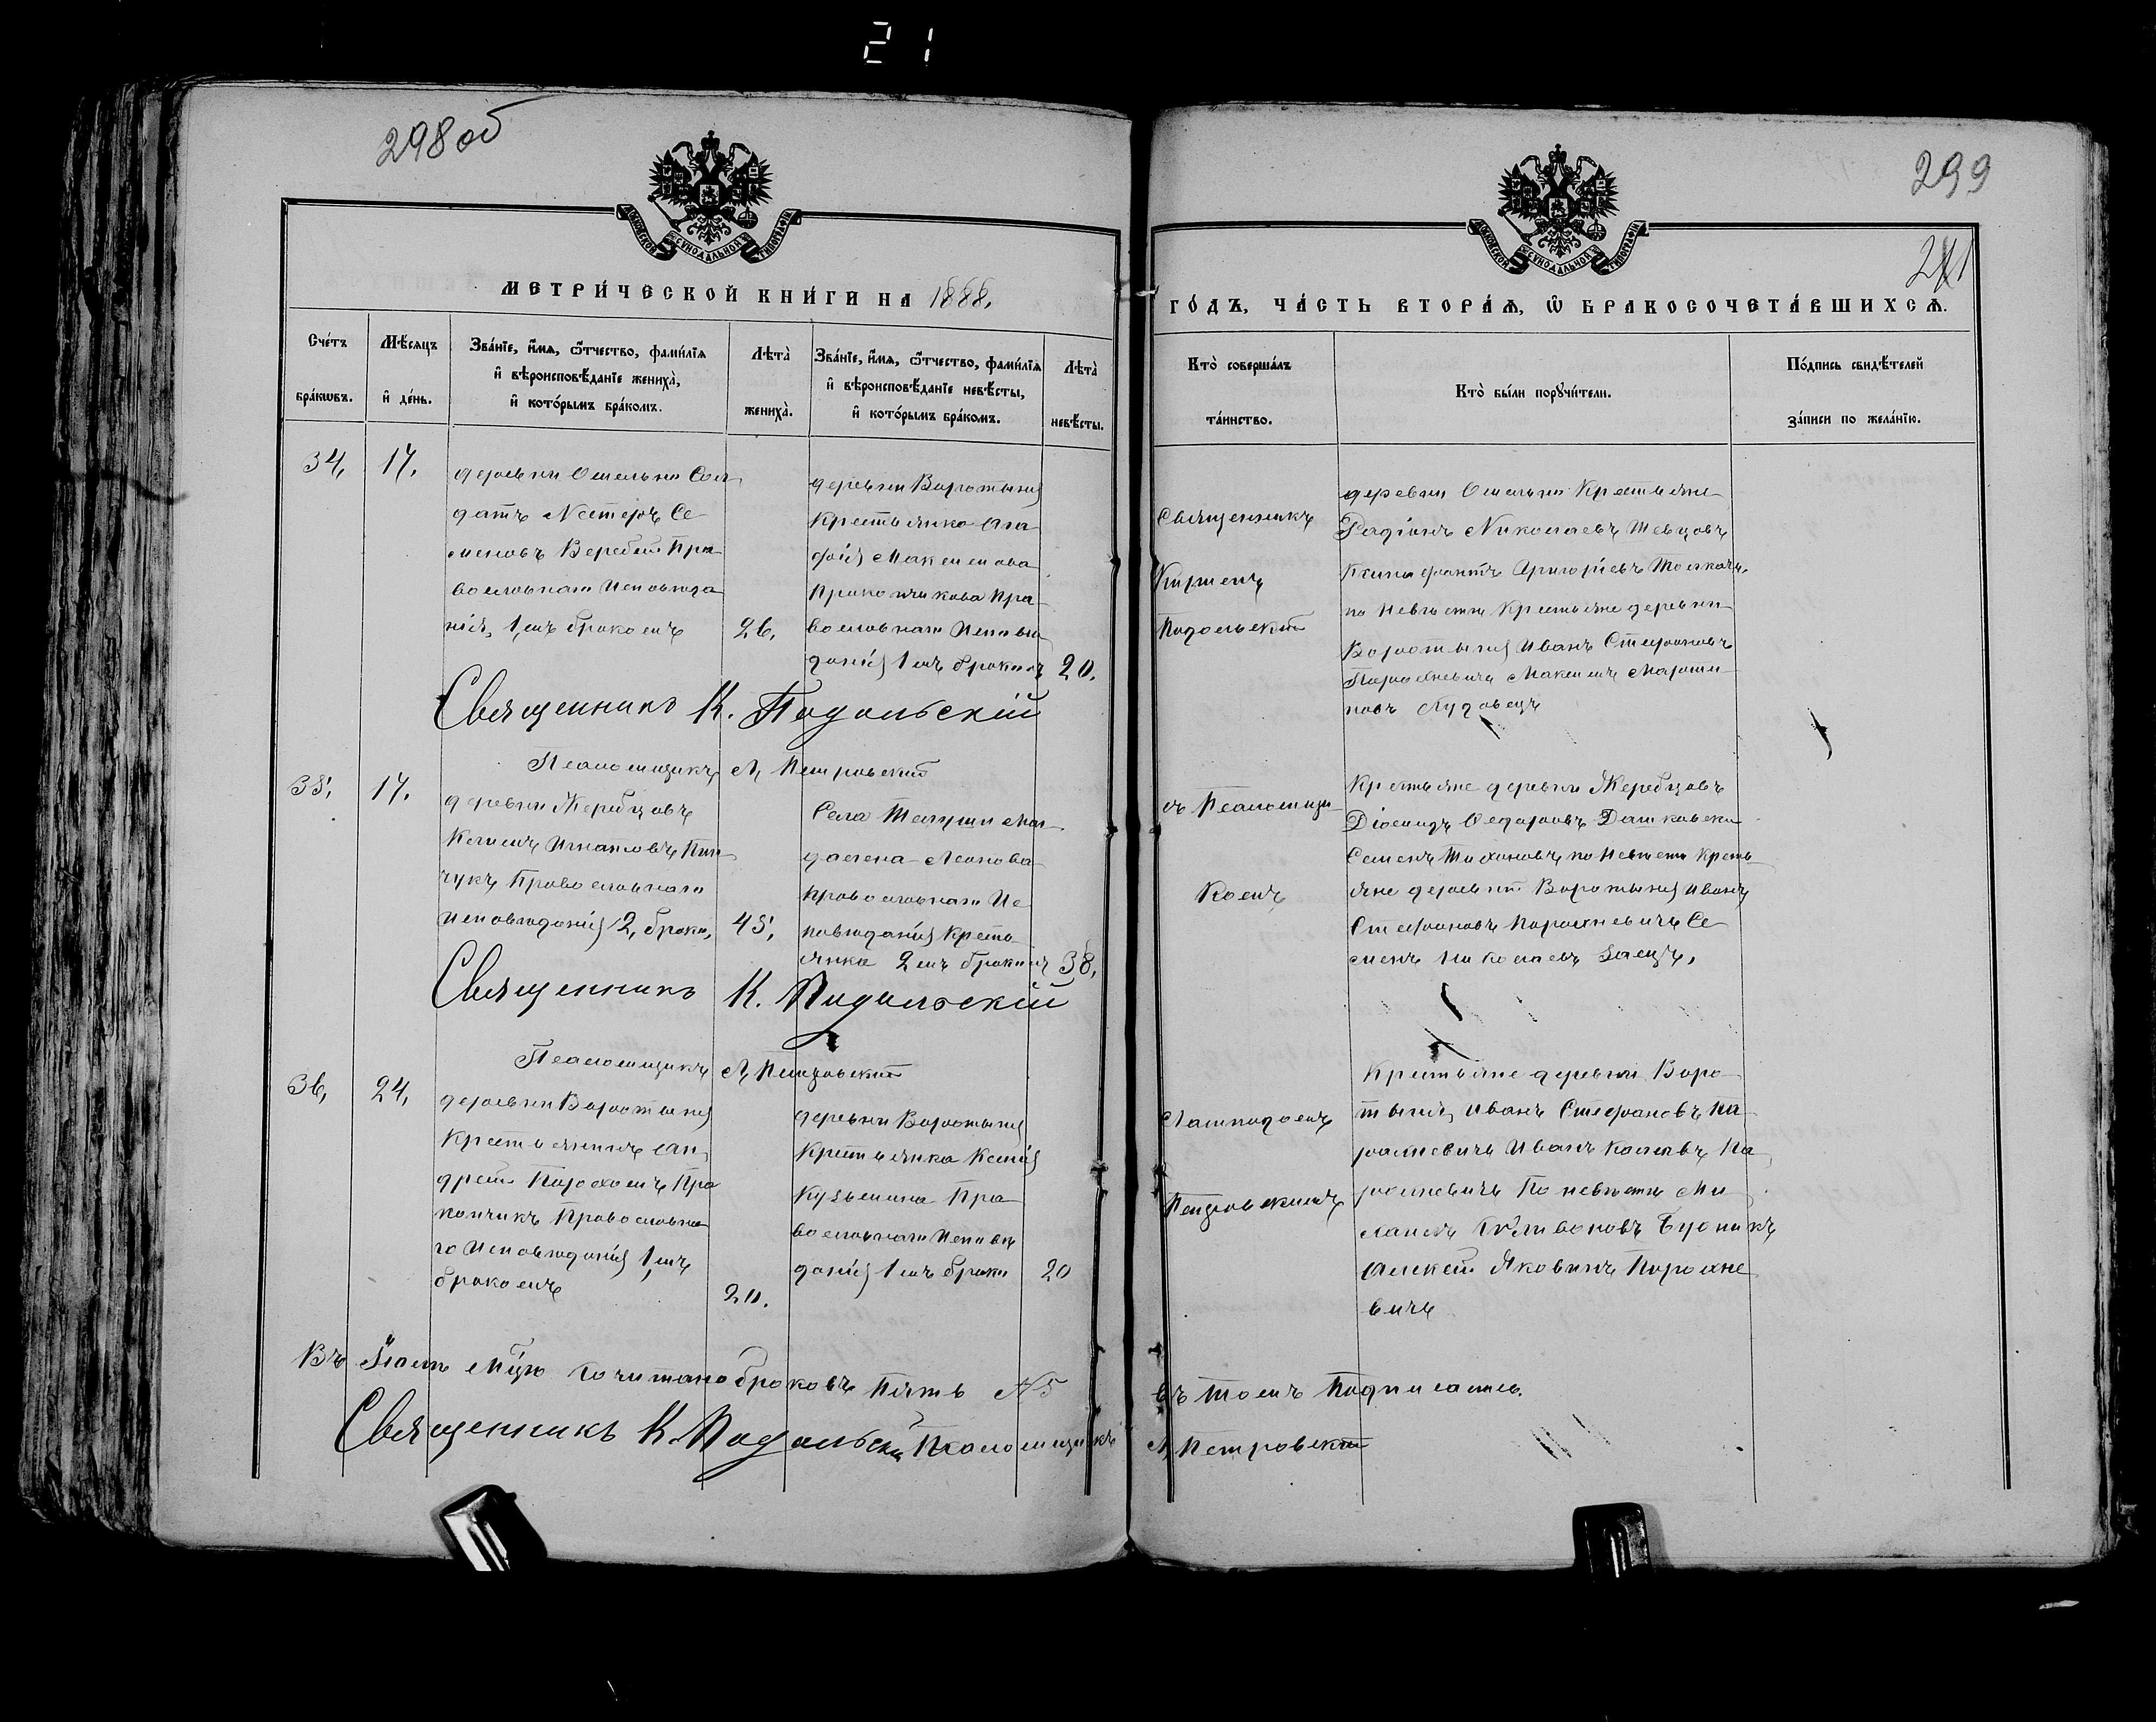 21
298 об
299
241
МОСКОВСКОЙ СѴНОДАЛЬНОЙ ТИПОГРАФІИ
МОСКОВСКОЙ СѴНОДАЛЬНОЙ ТИПОГРАФІИ
МЕТРИ́ЧЕСКОЙ КНИ́ГИ НА 1888.
ГО́ДЪ, ЧА́СТЬ ВТОРА́Ѧ, Ѿ БРАКОСОЧЕТА́ВШИХСѦ.
Сче́тъ бра́кωвъ.
Мѣ́сяцъ и҆ де́нь.
Зва́нїе, и҆́мѧ, ѻ҆́тчество, фами́лїѧ
и҆ вѣроисповѣ́данїе жениха̀,
и҆ кото́рымъ бра́комъ.
Лѣта̀ жениха̀.
Зва́нїе, и҆́мѧ, ѻ҆́тчество, фами́лїѧ
и҆ вѣроисповѣ́данїе невѣ́сты,
и҆ кото́рымъ бра́комъ.
Лѣта̀ невѣ́сты.
Кто̀ соверша́лъ
та́инство.
Кто̀ бы́ли порꙋчи́тели.
По́дпись свидѣ́телей
за́писи по жела́нїю.
34, 17.
деревни Ошельни Сол
датъ Несторъ Се
меновъ Веребей Пра
вославнаго Исповѣда
нія, 1,мъ бракомъ
26,
деревни Воротыня
Крестьянка Ага
фія Максимова
Прокопчикова Пра
вославнаго Исповѣ
данія 1мъ бракомъ
20.
Священникъ
Подольскій
деревни Крестьяне
Николаевъ Шевцовъ
Григоріевъ
по Невѣсте Крестьяне деревни
Воротыня Иванъ Стефановъ
Порохневичъ Максимъ Марти
новъ
Священникъ К. Подольскій
Псаломщикъ Л, Петровскій
35, 17.
деревни Жеребцовъ
Игнатовъ Пин
чукъ Православнаго
Исповѣданія 2, брака,
45,
Села Маг
далена Леонова
Православнаго Ис
повѣданія Кресть
янка 2мъ бракомъ
38,
съ Псаломщи
комъ
Крестьяне деревни Жеребцовъ
Федоровъ
Семенъ Тихоновъ по Невѣсте Кресть
яне деревни Воротыня Иванъ
Стефановъ Порохневичъ Се
менъ Николаевъ Заецъ,
Священникъ К. Подольскій
Псаломщикъ Л, Петровскій
36, 24,
деревни Воротыня
Крестьянинъ Ан
дрей Пра
копчикъ Православна
го Исповѣданія 1,мъ
бракомъ
20.
деревни Воротыня
Крестьянка Ксенія
Кузьмина Пра
вославнаго Исповѣ
данія 1мъ брака
20
Петровскимъ
Крестьяне деревни Воро
тыня, Иванъ Стефановъ По
рохневичъ Иванъ По
рохневичъ По невѣсте Ми
Алексей Яковичъ Порохне
вичъ
Въ Мцѣ Сочитано браковъ Пять № 5
въ томъ Подписались.
Священникъ К. Подольскій Псаломщикъ
Л, Петровскій